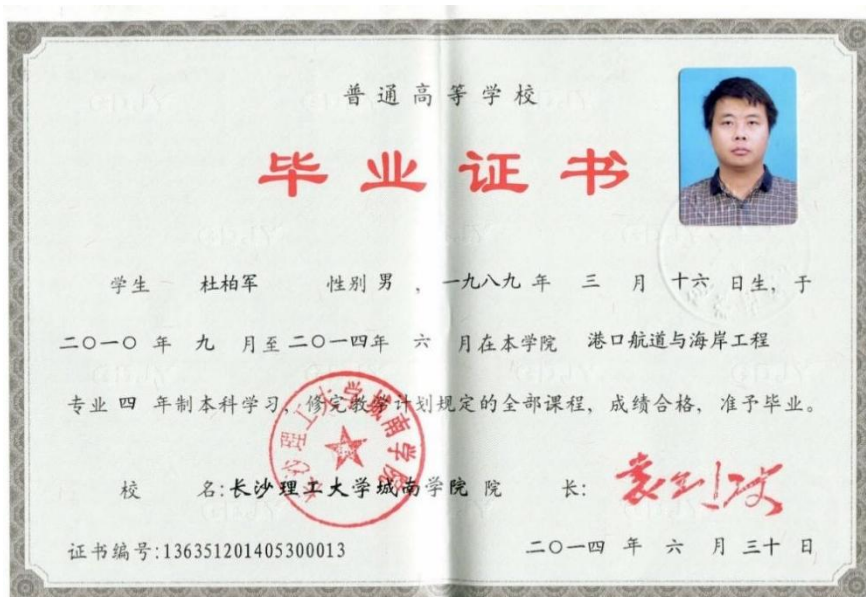 普通高等学校
毕业证书
学生 杜柏军 性别 男 ，一九八九 年 三 月 十六 日生，于
二〇一〇 年 九 月至 二〇一四年 六 月在本学院 港口航道与海岸工程
专业 四 年制本科学习，修完教学计划规定的全部课程，成绩合格，准予毕业。
长沙理工大学城南学院
校 名：长沙理工大学城南学院 院 长：
证书编号：136351201405300013 二〇一四 年 六 月 三十 日